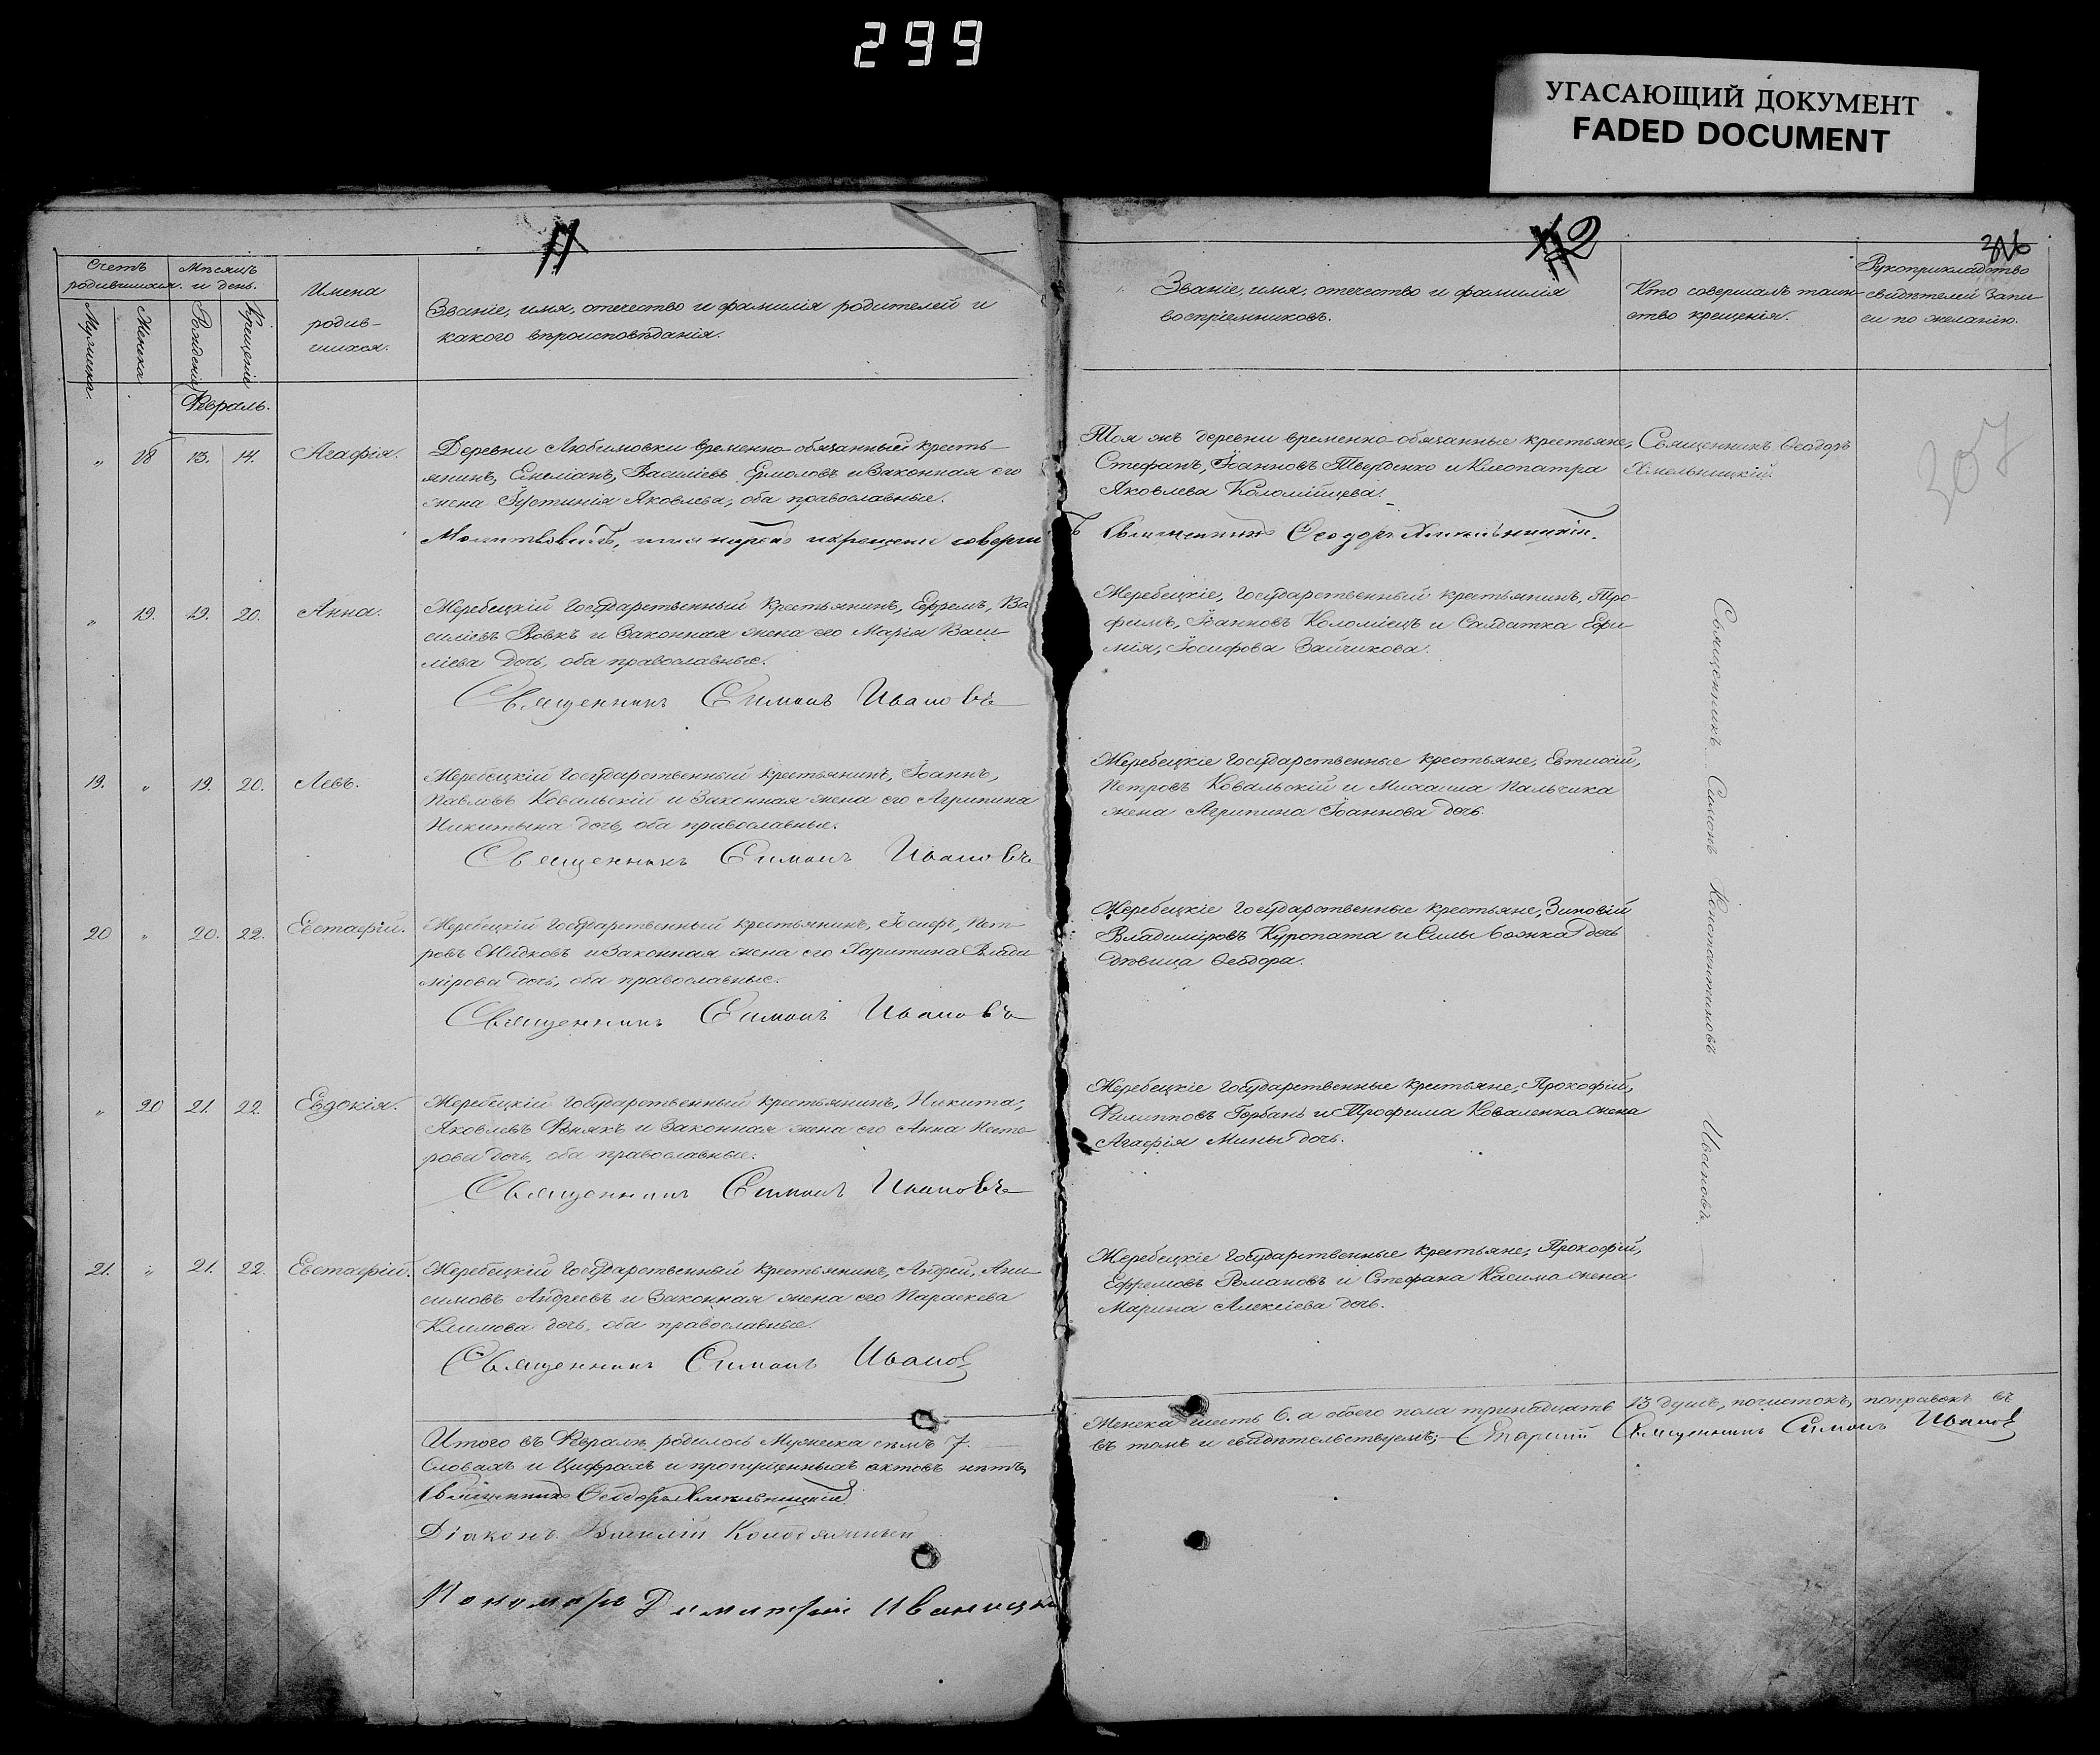 299
УГАСАЮЩИЙ ДОКУМЕНТ
FADED DOCUMENT
Счетъ родившихся.
Мѣсяцъ и день.
Мужеска.
Женска.
Рожденія
Крещенія
Имена родив-
шихся.
Званіе, имя, отечество и фамилія родителей и
какого вѣроисповѣданія.
Званіе, имя, отечество и фамилія
воспріемниковъ.
Кто совершалъ таин-
ство крещенія.
Рукоприкладство
свидѣтелей запи-
си по желанію.
Февраль.
307
„ 18 13. 14. Агафія.
Деревни Любимовки временно-обязанный кресть-
янинъ, Емеліанъ, Василіевъ Ермоловъ и законная его
жена Іустинія Яковлева, оба православные.
Тоя жъ деревни временно-обязанные крестьяне,
Стефанъ, Іоанновъ Тверденко и Клеопатра
Яковлева Коломійцева.
Священникъ Ѳеодоръ
Хмельницкій.
Молитвовалъ, имя нарекъ и крещеніе совершилъ Священникъ Ѳеодоръ Хмельницкій.
„ 19. 19. 20. Анна.
Жеребецкій Государственный крестьянинъ, Ефремъ, Ва
силіевъ Вовкъ и законная жена его Марія Васи-
ліева дочь, оба православные.
Священникъ Симонъ Ивановъ
Жеребецкіе, Государственный крестьянинъ, Тро-
фимъ, Іоанновъ Коломіецъ и Салдатка Ефи-
мія, Іосифова Зайчикова.
Священникъ Симонъ Константиновъ Ивановъ.
19. „ 19. 20. Левъ.
Жеребецкій Государственный крестьянинъ, Іоаннъ,
Павловъ Ковальскій и законная жена его Агрипина
Никитина дочь, оба православные.
Священникъ Симонъ Ивановъ
Жеребецкіе Государственные крестьяне, Евтихій,
Петровъ Ковальскій и Михаила Пальчика
жена Агрипина Іоаннова дочь.
20 „ 20. 22. Евстафій.
Жеребецкій Государственный крестьянинъ, Іосифъ, Пет-
ровъ Жидковъ и законная жена его Харитина Влади
мірова дочь, оба православные.
Священникъ Симонъ Ивановъ
Жеребецкіе Государственные крестьяне, Зиновій
Владиміровъ Куропата и Силы Божка дочь
дѣвица Ѳеодора.
„ 20 21. 22. Евдокія.
Жеребецкій Государственный крестьянинъ, Никита,
Яковлевъ и законная жена его Анна Несте-
рова дочь, оба православные.
Священникъ Симонъ Ивановъ
Жеребецкіе Государственные крестьяне, Прокофій,
Филипповъ Горбань и Трофима Коваленка жена
Агафія Мины дочь.
21. „ 21. 22. Евстафій.
Жеребецкій Государственный крестьянинъ, Андрей, Ани-
симовъ Андреевъ и законная жена его Параскева
Климова дочь, оба православные.
Священникъ Симонъ Ивановъ
Жеребецкіе Государственные крестьяне, Прокофій,
Ефремовъ Романовъ и Стефана Касима жена
Марина Алексіева дочь.
Итого въ Февралѣ родилось Мужеска семь 7.
Женска шесть 6. а обоего пола тринадцать 13 душъ, почистокъ, поправокъ въ
Словахъ и Цифрахъ и пропущенныхъ актовъ нѣтъ,
въ томъ и свидѣтельствуемъ; Старшій Священникъ Симонъ Ивановъ
Священникъ Ѳеодоръ Хмельницкій
Діаконъ Василій
Пономарь Димитрій Иваницкій